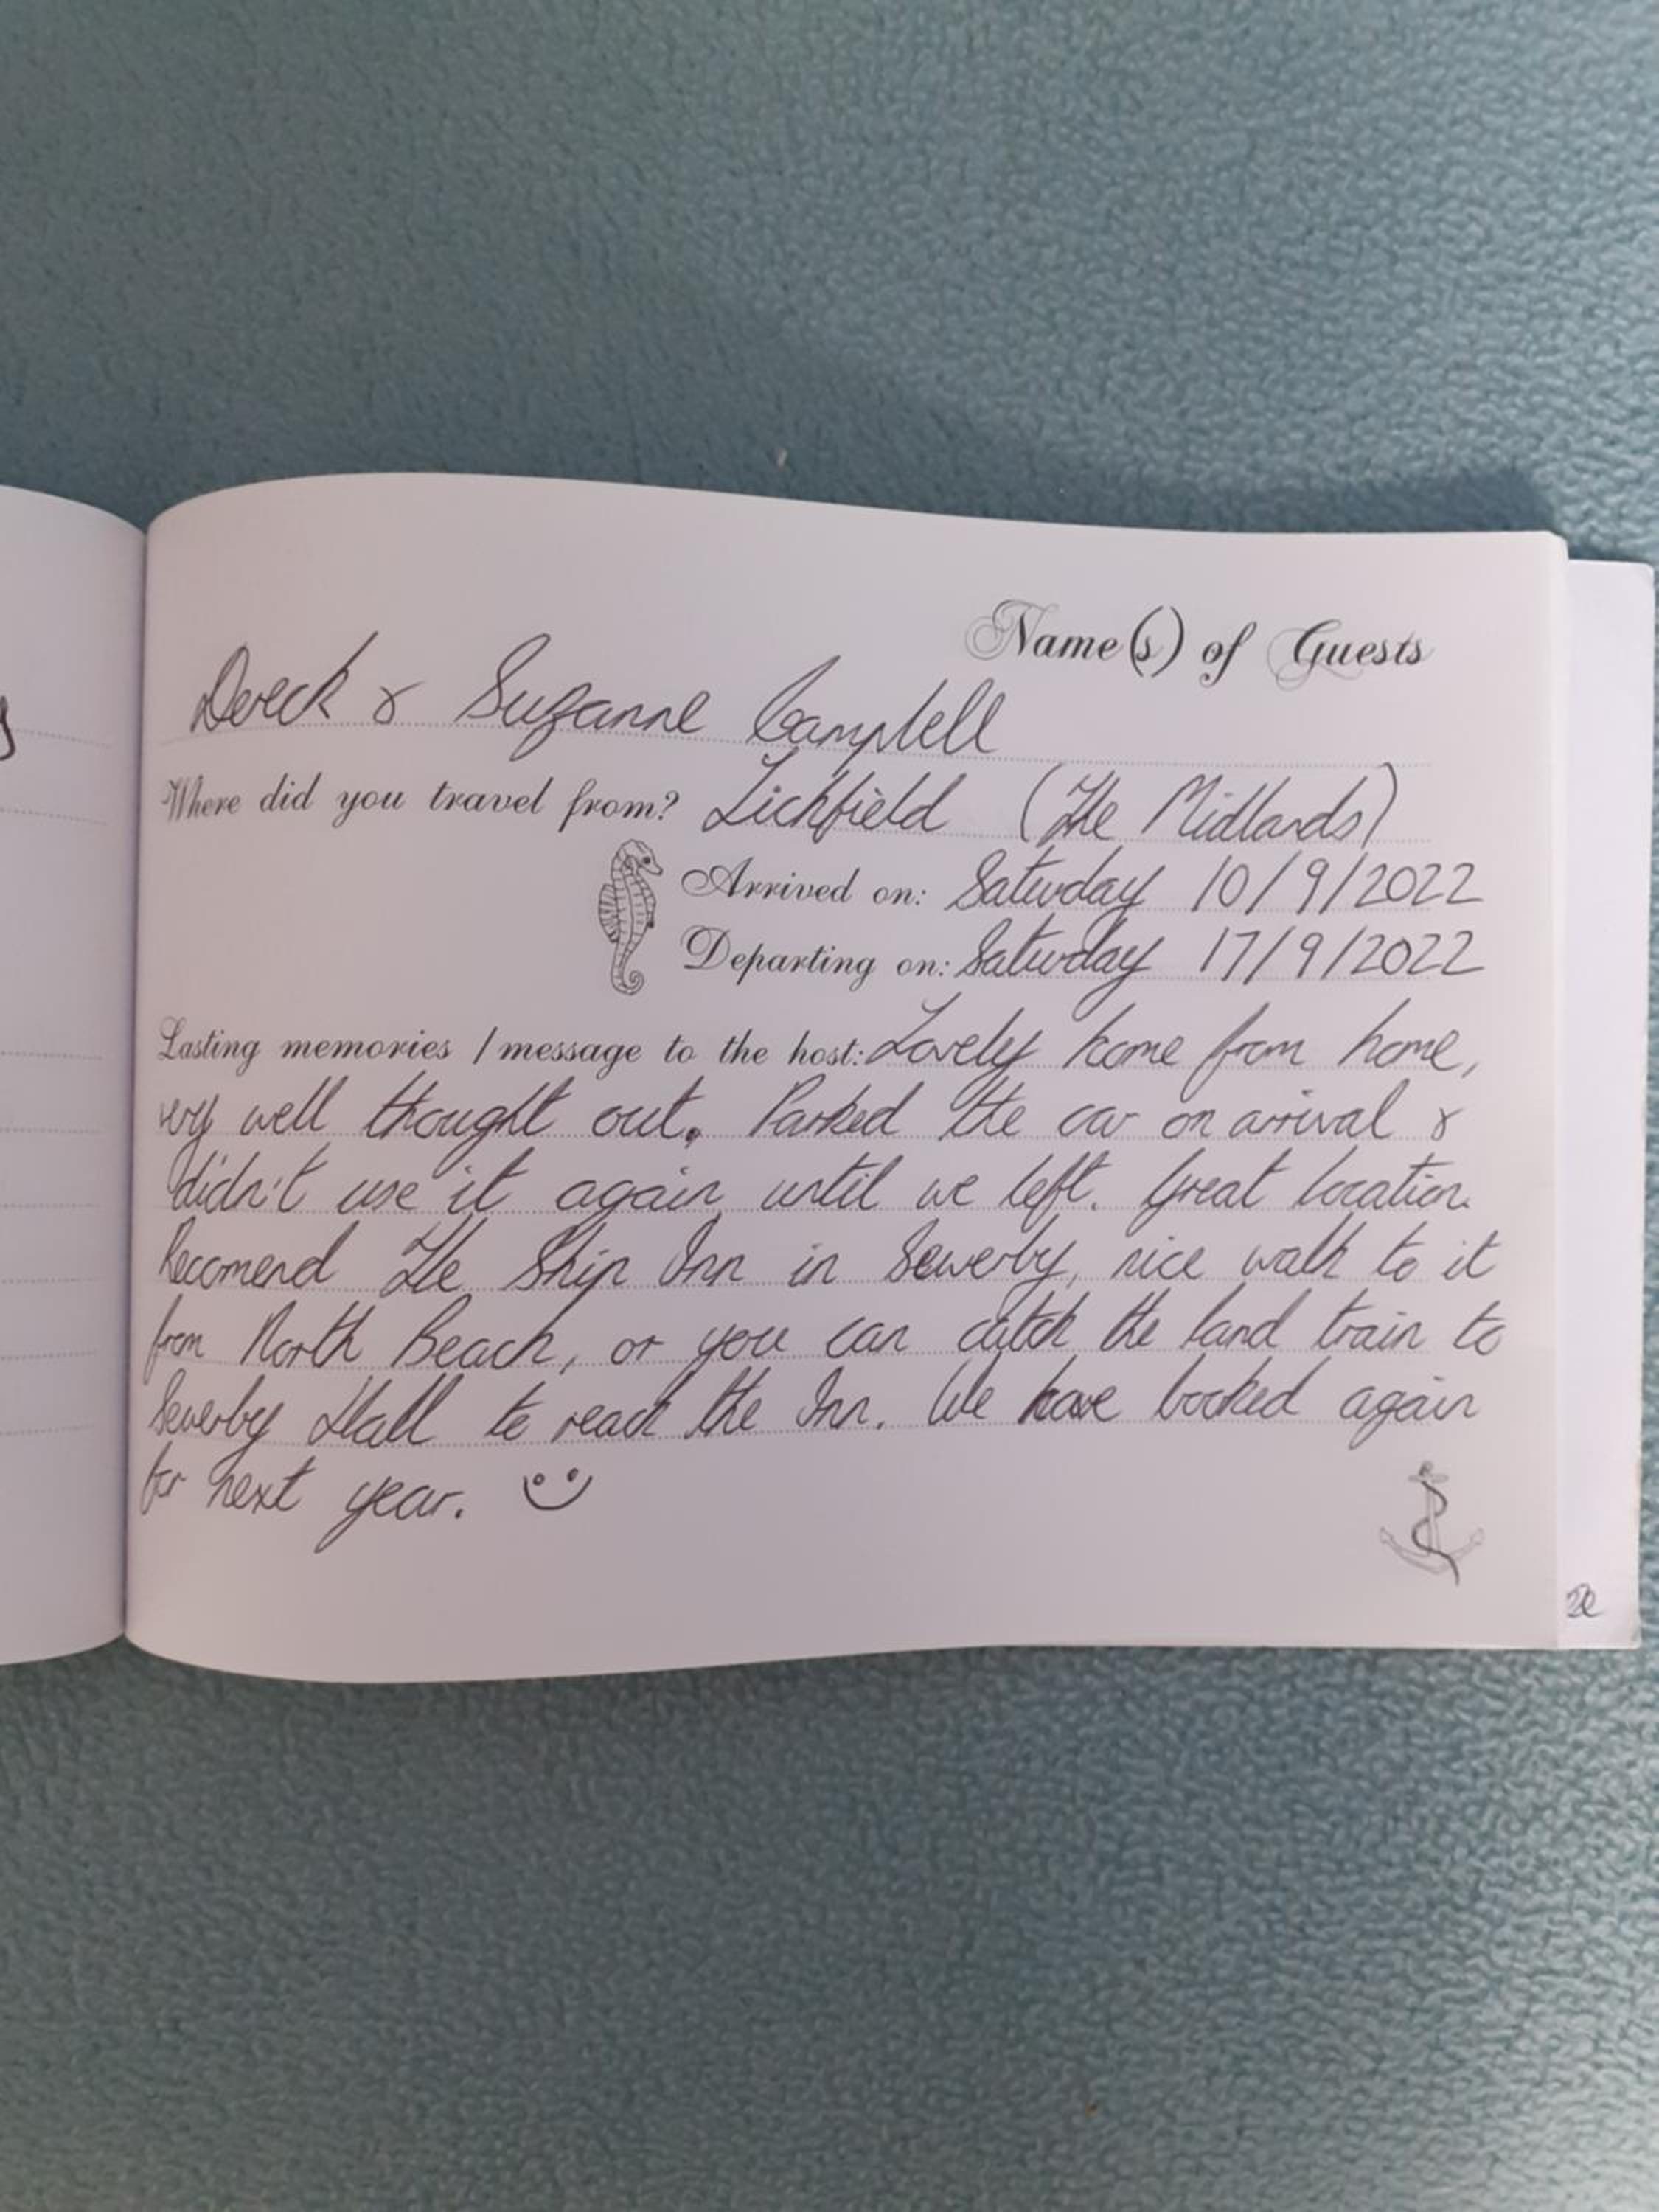 Name(s) of Guests
Dereck & Suzanne Campbell
Where did you travel from? Lichfield (The Midlands)
Arrived on: Saturday 10/9/2022
Departing on: Saturday 17/9/2022
Lasting memories / message to the host: Lovely home from home,
very well thought out. Parked the car on arrival &
didn't use it again until we left. Great location.
Reccomend The Ship Inn in Sewerby, nice walk to it
from North Beach, or you can catch the land train to
Sewerby Hall to reach the Inn. We have booked again
for next year.